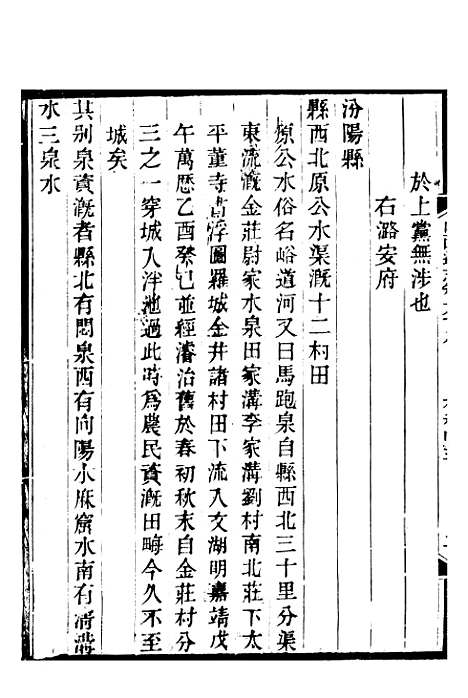 於上黨無涉也
右潞安府
汾陽縣
縣西北原公水渠漑十二村田
原公水俗名峪道河又曰馬跑泉自縣西北三十里分渠
東流漑金莊尉家水泉田家溝李家溝劉村南北莊下太
平董寺古浮圖羅城金井諸村田下流入文湖明嘉靖戊
午萬歷乙酉癸巳並經濬治舊於春初秋末自金莊村分
三之一穿城入泮池過此時爲農民資漑田畮今久不至
城矣
其别泉資漑者縣北有悶泉西有向陽水麻窟水南有淸
水三泉水